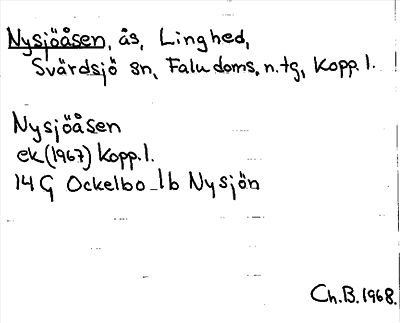 Nysjöåsen, ås, Linghed,
Svärdsjö sn, Falu doms. n. tg, Kopp. l.
Nysjöåsen
ek (1967) Kopp. l.
14 G Ockelbo - 1b Nysjön
Ch. B. 1968.